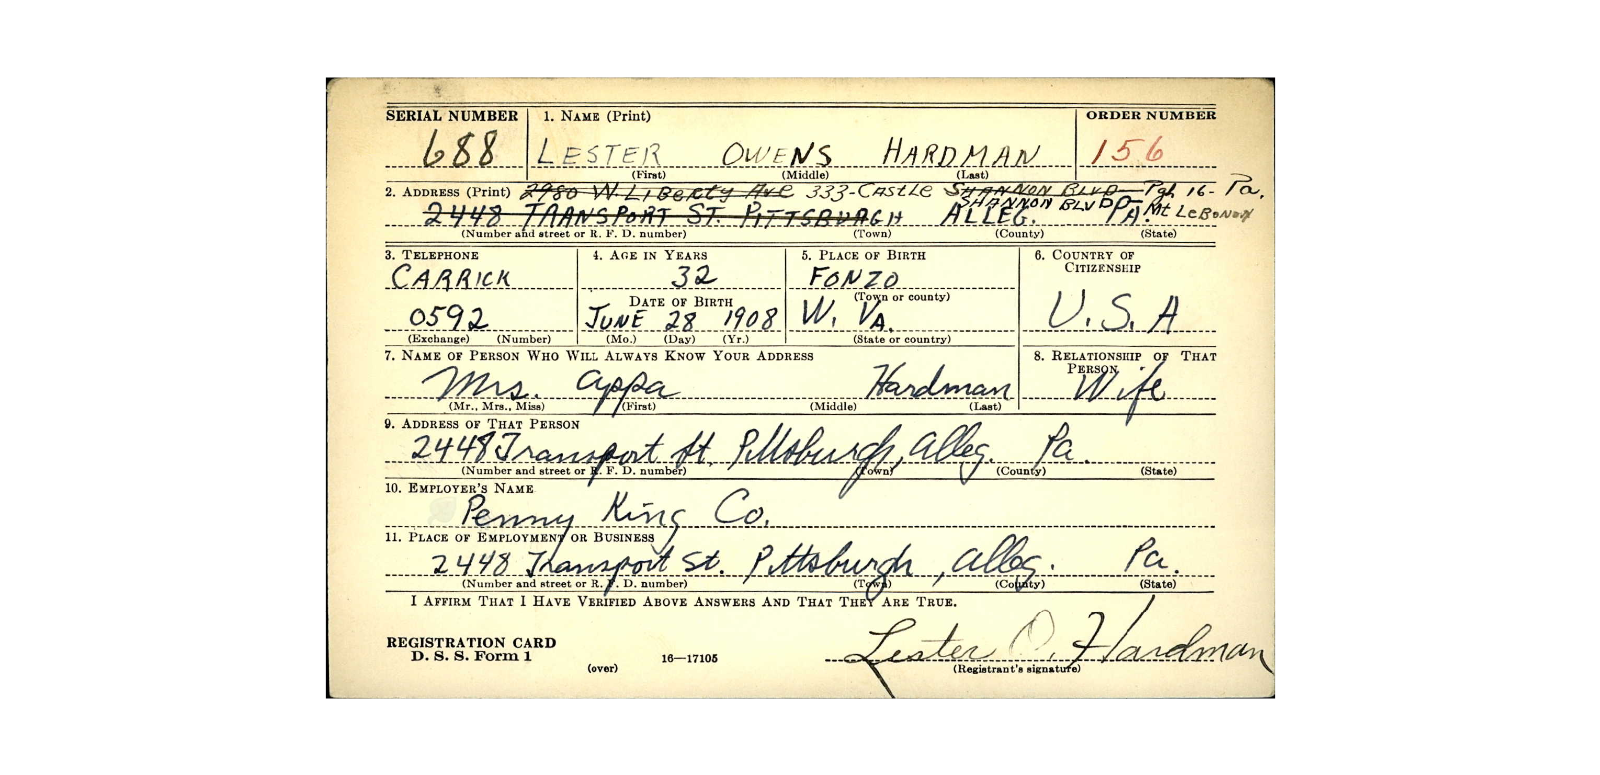 SERIAL NUMBER 1. NAME (Print) ORDER NUMBER
688 LESTER OWENS HARDMAN 156
(First) (Middle) (Last)
2. ADDRESS (Print) 2980 W. LIBERTY AVE 333-CASTLE SHANNON BLVD- Pgh 16- Pa.
SHANNON BLVD
2448 TRANSPORT ST. PITTSBURGH ALLEG. PA. Mt LEBONON
(Number and street or R. F. D. number) (Town) (County) (State)
3. TELEPHONE 4. AGE IN YEARS 5. PLACE OF BIRTH 6. COUNTRY OF
CITIZENSHIP
CARRICK 32 FONZO
DATE OF BIRTH (Town or county)
0592 JUNE 28 1908 W. VA. U.S.A
(Exchange) (Number) (Mo.) (Day) (Yr.) (State or country)
7. NAME OF PERSON WHO WILL ALWAYS KNOW YOUR ADDRESS 8. RELATIONSHIP OF THAT
PERSON
Mrs. Appa Hardman Wife
(Mr., Mrs., Miss) (First) (Middle) (Last)
9. ADDRESS OF THAT PERSON
2448 Transport St. Pittsburgh, Alleg. Pa.
(Number and street or R. F. D. number) (Town) (County) (State)
10. EMPLOYER'S NAME
Penny King Co.
11. PLACE OF EMPLOYMENT OR BUSINESS
2448 Transport St. Pittsburgh, Alleg. Pa.
(Number and street or R. F. D. number) (Town) (County) (State)
I AFFIRM THAT I HAVE VERIFIED ABOVE ANSWERS AND THAT THEY ARE TRUE.
REGISTRATION CARD
D. S. S. Form 1 (over) 16—17105 Lester O. Hardman
(Registrant's signature)